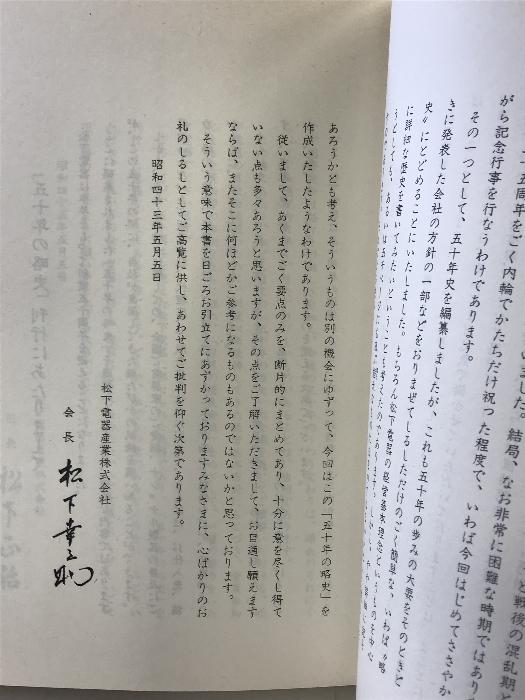 五周年をごく内輪でかたちだけ祝った程度で、いわば今回はじめてささやか
がら記念行事を行なうわけであります。
その一つとして、五十年史を編纂しましたが、これも五十年の歩みの大要をそのときど
きに発表した会社の方針の一部などをおりまぜてしるしただけのごく簡単な、いわば〝略
史〟にとどめることにいたしました。もちろん松下電器の経営基本理念というものを中心
に詳細な歴史を書いてみたいということも考えたのであります。
あろうかとも考え、そういうものは別の機会にゆずって、今回はこの「五十年の略史」を
作成いたしたようなわけであります。
従いまして、あくまでごく要点のみを、断片的にまとめてあり、十分に意を尽くし得て
いない点も多々あろうと思いますが、その点をご了解いただきまして、お目通し願えます
ならば、またそこに何ほどかご参考になるものもあるのではないかと思っております。
そういう意味で本書を日ごろお引立てにあずかっておりますみなさまに、心ばかりのお
礼のしるしとしてご高覧に供し、あわせてご批判を仰ぐ次第であります。
昭和四十三年五月五日
松下電器産業株式会社
会長 松下幸之助